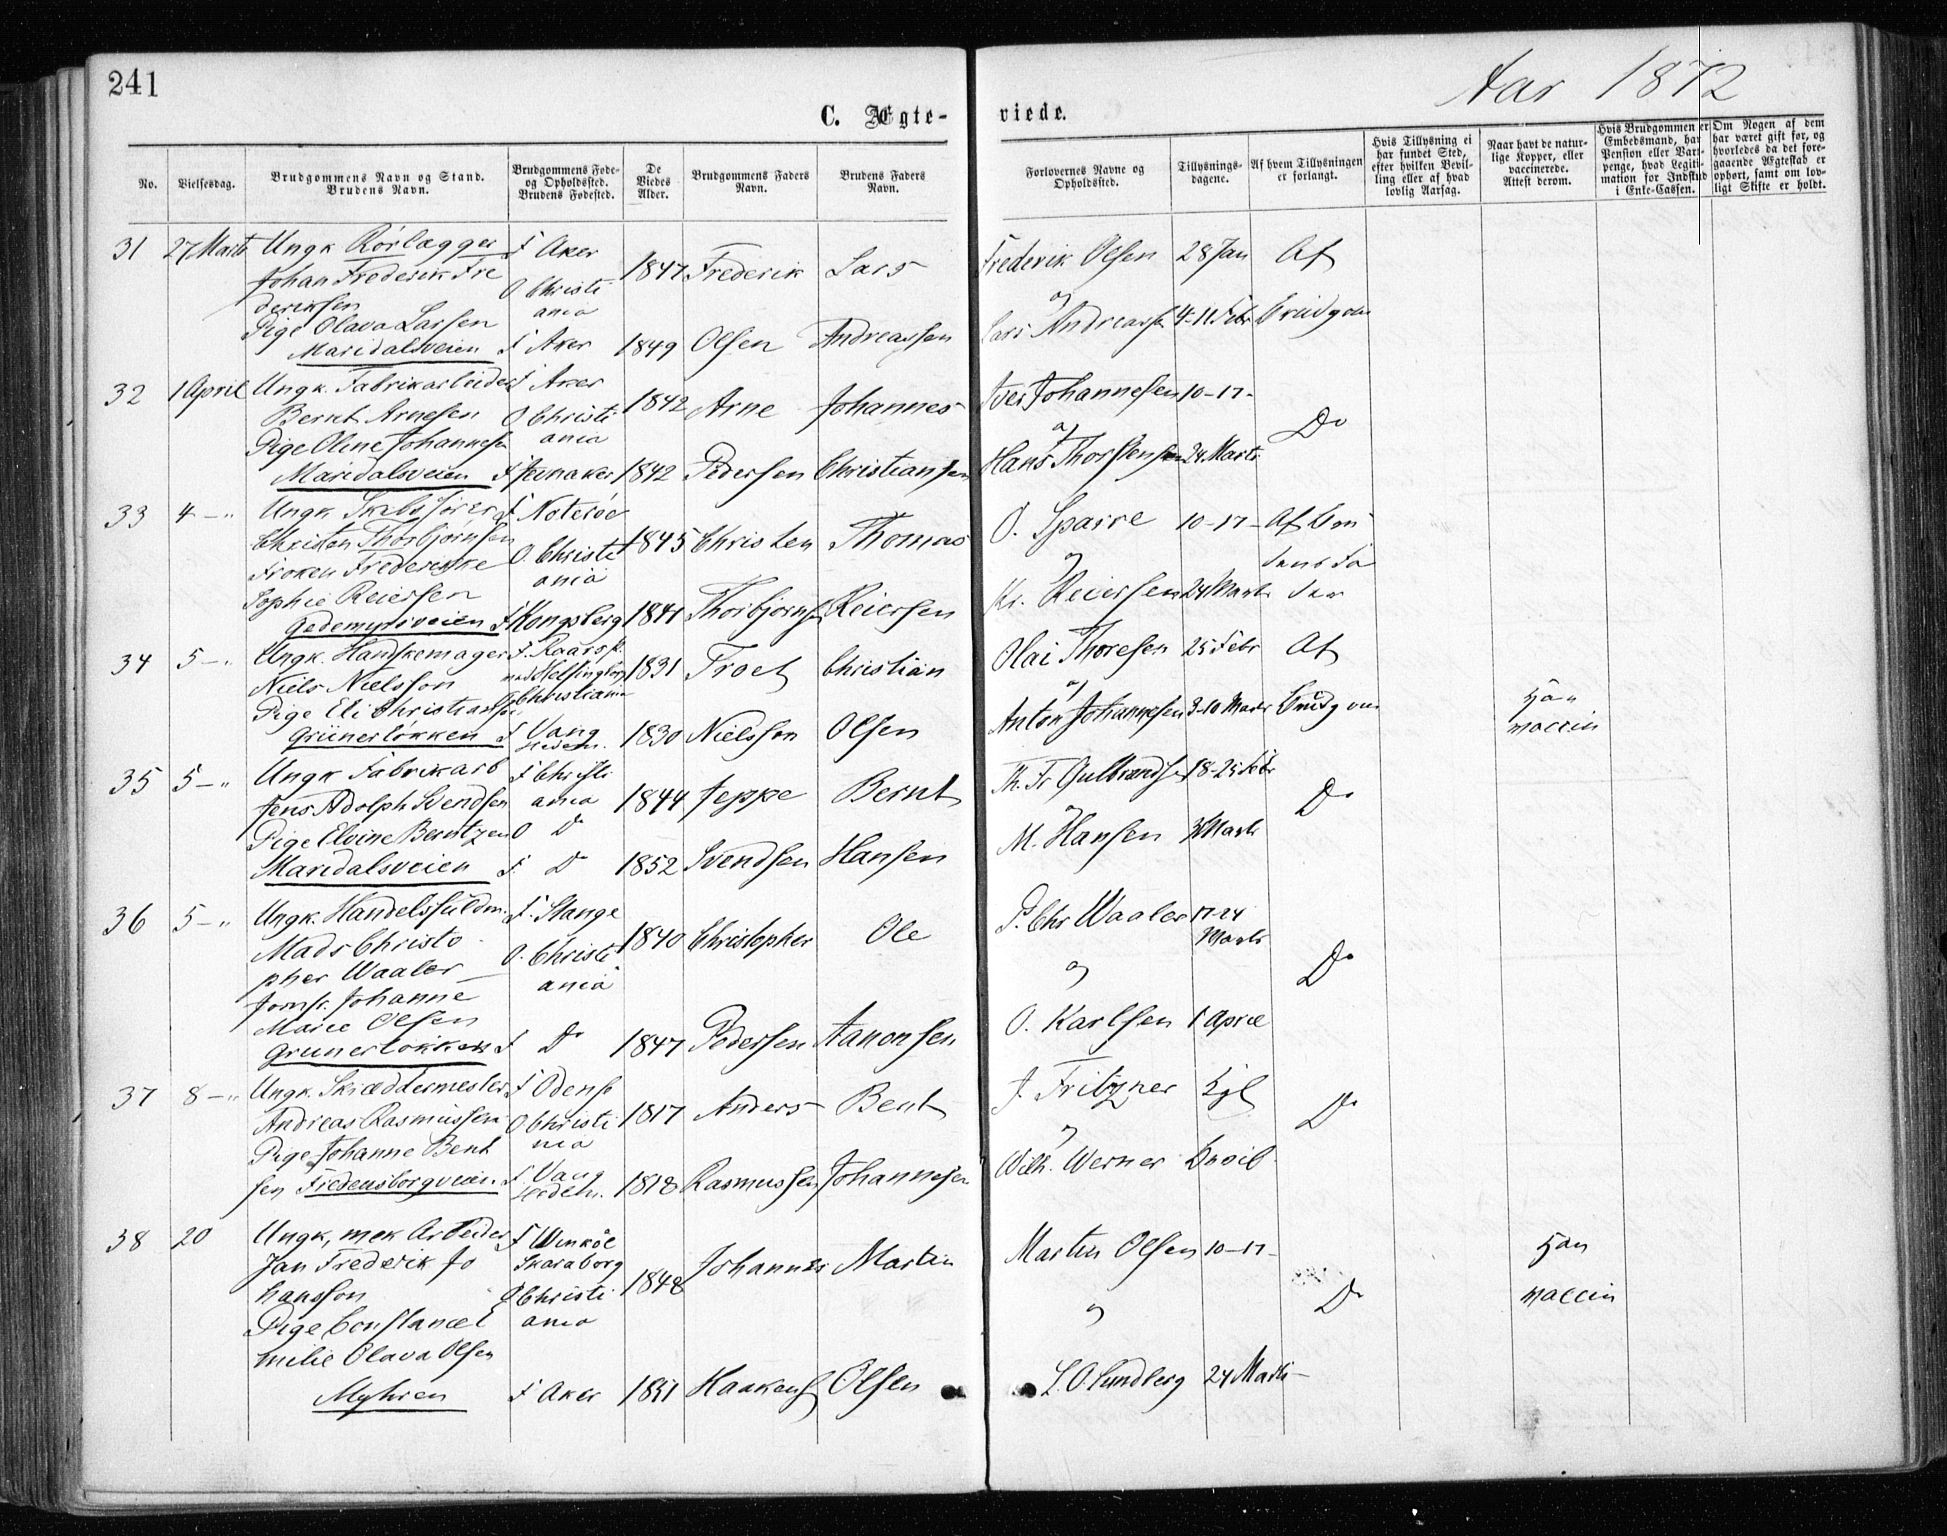 241
Aar 1872
C. Ægte-
viede.
No.
Vielsesdag.
Brudgommens Navn og Stand.
Brudens Navn.
Brudgommens Føde-
og Opholdssted.
Brudens Fødested.
De
Viedes
Alder.
Brudgommens Faders
Navn.
Brudens Faders
Navn.
Forlovernes Navne og
Opholdssted.
Tillysnings-
dagene.
Af hvem Tillysningen
er forlangt.
Hvis Tillysning ei
har fundet Sted,
efter hvilken Bevil-
ling eller af hvad
lovlig Aarsag.
Naar havt de natur-
lige Kopper, eller
vaccinerede.
Attest derom.
Hvis Brudgommen er
Embedsmand, har
Pension eller Vart-
penge, hvad Legiti-
mation for Indskud
i Enke-Cassen.
Om Nogen af dem
har været gift før, og
hvorledes da det fore-
gaaende Ægteskab er
ophørt, samt om lov-
ligt Skifte er holdt.
31 27 Marts Ungk Rørlægger F Aker
Johan Frederik Fre O Christi 1847 Frederik Lars Frederik Olsen 28 Jan Af
deriksen ania og
Pige Olava Larsen Lars Andreassen 4-11 Febr Brudgom
Maridalsveien F Aker 1849 Olsen Andreassen
32 1 April Ungk. Fabrikarbeider F Aker
Bernt Arnesen O Christi 1842 Arne Johannes Iver Johannesen 10-17-
Pige Oline Johannesen ania og Do
Maridalsveien F Jevnaker 1842 Pedersen Christiansen Hans Thorstensen 24 Marts
33 4 - " Ungk. Skibsfører F Noterøe
Christen Thorbjørnsen O. Christi 1845 Christen Thomas O. Sparre 10-17- Af Bru
Frøken Frederikke ania og dens Fa
Sophie Reiersen Kr. Reiersen 24 Marts der
Gedemyrsveien F Kongsberg 1841 Thorbjørnsen Reiersen
34 5 - " Ungk. Handskemager F.
Niels Nielsson Helsingborg 1831 Troet Christian Olai Thoresen 25 Febr Af
Pige Eli Christiansen O Christiania og
Grünerløkken F Vang 1830 Nielsson Olsen Anton Johannesen 3-10 Marts Brudgom Han vaccin
Hedem.
35 5 - " Ungk Fabrikarb F Christi
Jens Adolph Svendsen ania 1844 Jeppe Bernt Th. Fr Gulbrandsen 18-25 Febr
Pige Elvine Berntzen O Do og Do
Maridalsveien F. Do 1852 Svendsen Hansen M. Hansen 3 Marts
36 5 - " Ungk. Handelsfuldm. F. Stange
Mads Christo- O. Christi 1840 Christopher Ole P. Chr Waaler 17-24 Marts
pher Waaler ania og Do
Jomfr. Johanne
Marie Olsen
Grünerløkken F Do 1847 Pedersen Aanonsen O. Karlsen 1 April
37 8 - " Ungk. Skræddermester F Odense
Andreas Rasmussen O Christi 1817 Anders Bent J. Fritzner Kgl
Pige Johanne Bent nia og Do
sen Fredensborgveien F Vang 1818 Rasmussen Johannesen Wilh. Werner
Hedem.
38 20 Ungk, mek Arbeider F
Jan Frederik Jo Skaraborg Johannes Martin Martin Olsen 10-17- Han
hansson O Christi 1848
Pige Constance E ania og Do vaccin
milie Olava Olsen
Myhren F Aker 1851 Haakens Olsen L. O. Lundberg 24 Marts